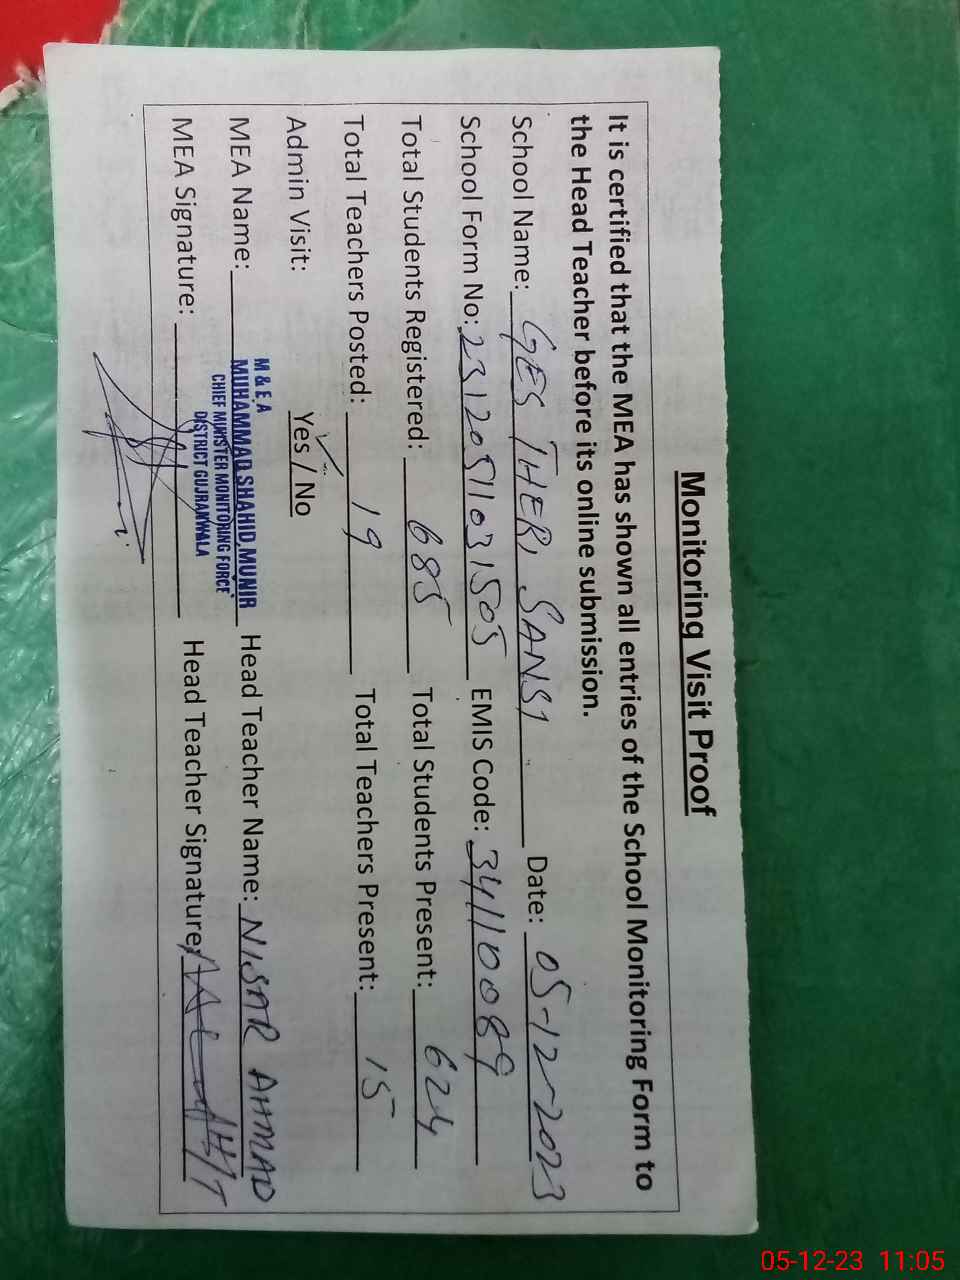 Monitoring Visit Proof
It is certified that the MEA has shown all entries of the School Monitoring Form to
the Head Teacher before its online submission.
School Name: GES THERI SANSI Date: 05-12-2023
School Form No: 23120511031505 EMIS Code: 34110089
Total Students Registered: 685 Total Students Present: 624
Total Teachers Posted: 19 Total Teachers Present: 15
Admin Visit: Yes / No
M & E A
MEA Name: MUHAMMAD SHAHID MUNIR Head Teacher Name: NISAR AHMAD
CHIEF MINISTER MONITORING FORCE
DISTRICT GUJRANWALA
MEA Signature: Head Teacher Signature:
05-12-23 11:05